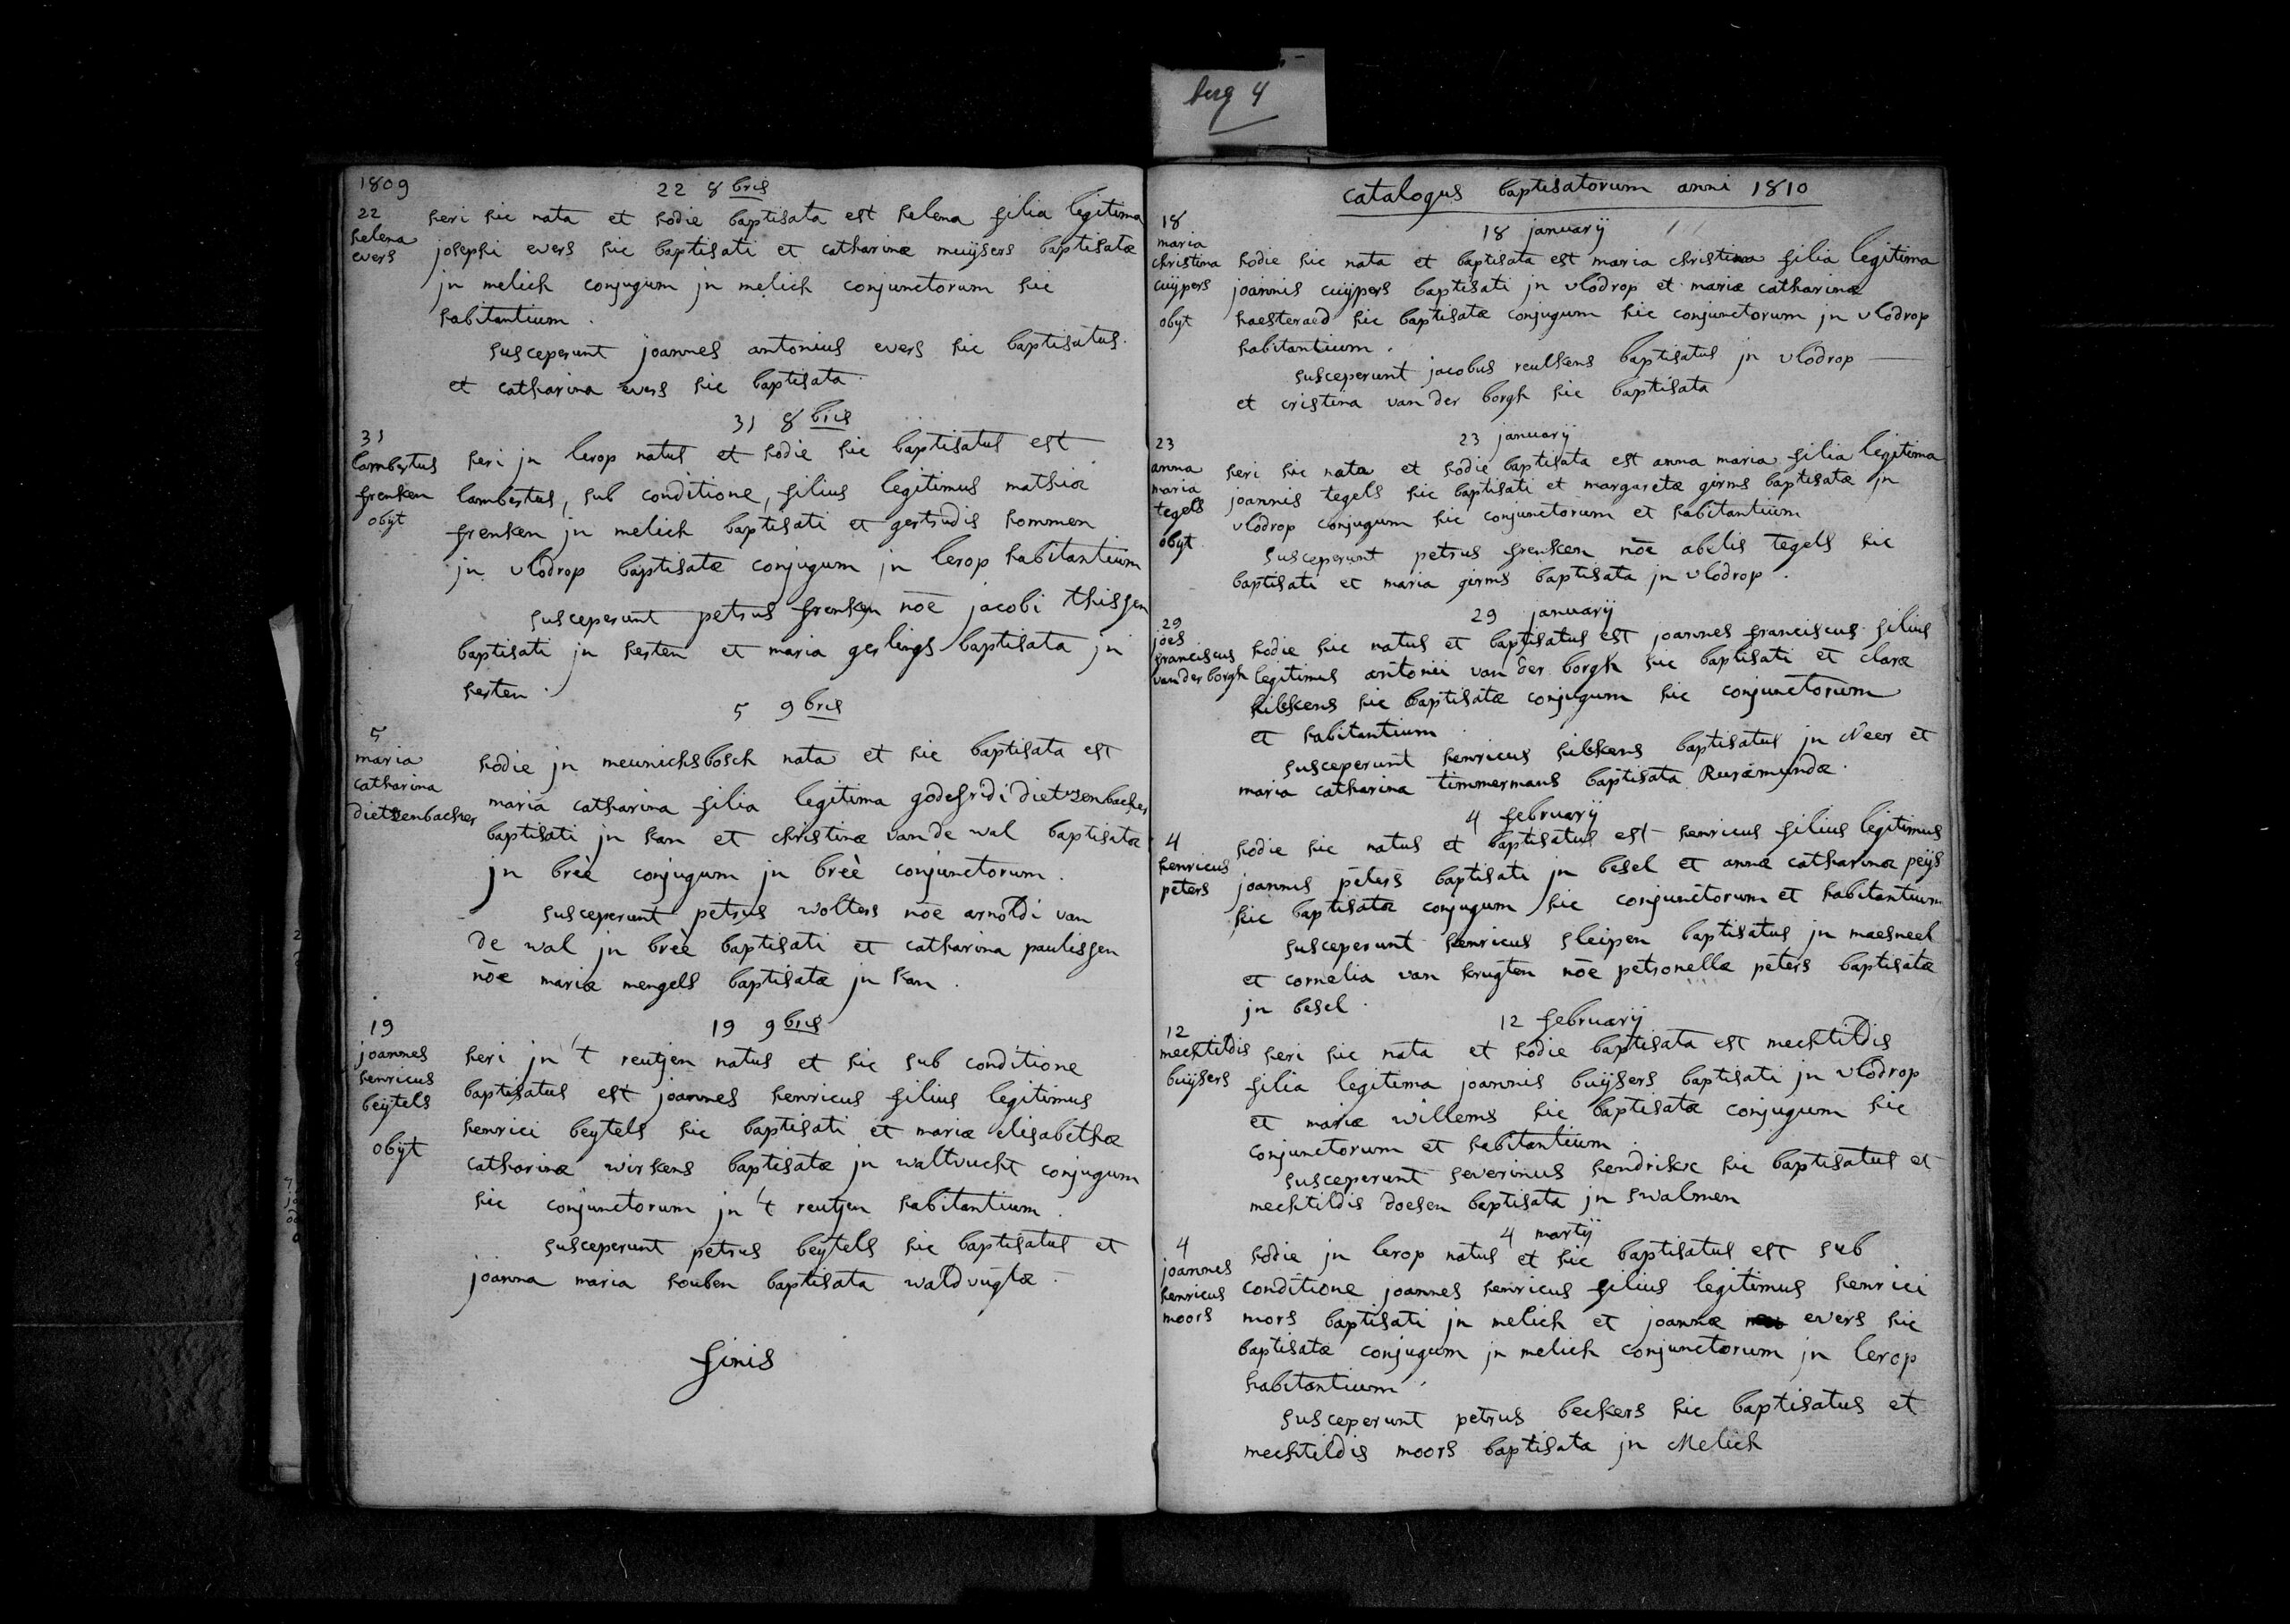 berg 4
1809
22 8bris
22
helena
evers
heri hic nata et hodie baptisata est helena filia legitima
josephi evers hic baptisati et catharinæ muijsers baptisatæ
jn melich conjugum jn melich conjunctorum hic
habitantium.
susceperunt joannes antonius evers hic baptisatus.
et catharina evers hic baptisata.
31 8bris
31
lambertus
frenken
obijt
heri jn lerop natus et hodie hic baptisatus est
lambertus, sub conditione, filius legitimus mathiæ
frenken jn melich baptisati et gertrudis hommen
jn vlodrop baptisatæ conjugum jn lerop habitantium
susceperunt petrus frenken nōe jacobi thissen
baptisati jn herten et maria gerlings baptisata jn
herten.
5 9bris
5
maria
catharina
dietzenbacher
hodie jn meunichsbosch nata et hic baptisata est
maria catharina filia legitima godefridi dietzenbacher
baptisati jn han et christinæ van de wal baptisatæ
jn breè conjugum jn breè conjunctorum.
susceperunt petrus wolters nōe arnoldi van
de wal jn breè baptisati et catharina paulissen
nōe mariæ mengels baptisatæ jn han.
19 9bris
19
joannes
henricus
beijtels
obijt
heri jn 't reutjen natus et hic sub conditione
baptisatus est joannes henricus filius legitimus
henrici beytels hic baptisati et mariæ elisabethæ
catharinæ wirkens baptisatæ jn waltvucht conjugum
hic conjunctorum jn 't reutjen habitantium.
susceperunt petrus beÿtels hic baptisatus et
joanna maria houben baptisata waldvugtæ.
finis
catalogus baptisatorum anni 1810
18 januarij
18
maria
christina
cuijpers
obijt
hodie hic nata et baptisata est maria christina filia legitima
joannis cuijpers baptisati jn vlodrop et mariæ catharinæ
haesteraed hic baptisatæ conjugum hic conjunctorum jn vlodrop
habitantium.
susceperunt jacobus reulkens baptisatus jn vlodrop
et cristina van der borgh hic baptisata
23 januarij
23
anna
maria
tegels
obijt.
heri hic nata et hodie baptisata est anna maria filia legitima
joannis tegels hic baptisati et margaretæ girms baptisatæ jn
vlodrop conjugum hic conjunctorum et habitantium
susceperunt petrus frenken nōe abelis tegels hic
baptisati et maria girms baptisata jn vlodrop.
29 januarij
29
joes
franciscus
van der borgh
hodie hic natus et baptisatus est joannes franciscus filius
legitimus antonii van der borgh hic baptisati et claræ
hibkens hic baptisatæ conjugum hic conjunctorum
et habitantium.
susceperunt henricus hibkens baptisatus jn Neer et
maria catharina timmermans baptisata Ruræmundæ.
4 februarij
4
henricus
peters
hodie hic natus et baptisatus est henricus filius legitimus
joannis peters baptisati jn besel et annæ catharinæ peijs
hic baptisatæ conjugum hic conjunctorum et habitantium
susceperunt henricus sleipen baptisatus jn maesneel
et cornelia van krugten nōe petronellæ peters baptisatæ
jn besel.
12 februarij
12
mechtildis
buijsers
heri hic nata et hodie baptisata est mechtildis
filia legitima joannis buijsers baptisati jn vlodrop
et mariæ willems hic baptisatæ conjugum hic
conjunctorum et habitantium.
susceperunt severinus hendrikx hic baptisatus et
mechtildis doesen baptisata jn swalmen
4 martij
4
joannes
henricus
moors
hodie jn lerop natus et hic baptisatus est sub
conditione joannes henricus filius legitimus henrici
mors baptisati jn melich et joannæ evers hic
baptisatæ conjugum jn melich conjunctorum jn lerop
habitantium.
susceperunt petrus beckers hic baptisatus et
mechtildis moors baptisata jn Melich